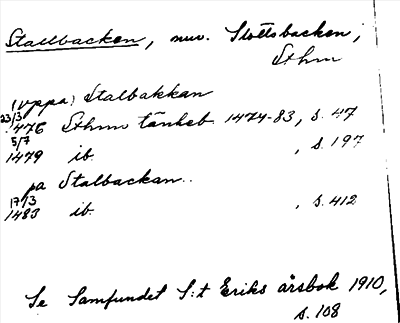 Stallbacken, nuv. Slottsbacken,
Sthm
(vppa) Stalbakkan
23/3 1476 Sthms tänkeb. 1474-83, s. 47
5/7 1479 ib. , s. 197
pa Stalbackan..
17/3 1483 ib. , s. 412
Se Samfundet S:t Eriks årsbok 1910,
s. 108